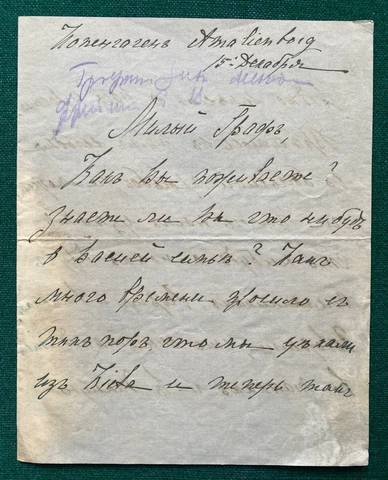 Копенгагенъ Amalienborg
5го Декабря
Милый Графъ,
Какъ вы поживаете?
Знаете ли вы что нибудь
о вашей семьѣ? Какъ
много времени прошло съ
тѣхъ поръ, что мы уѣхали
изъ Кіева и теперь такъ